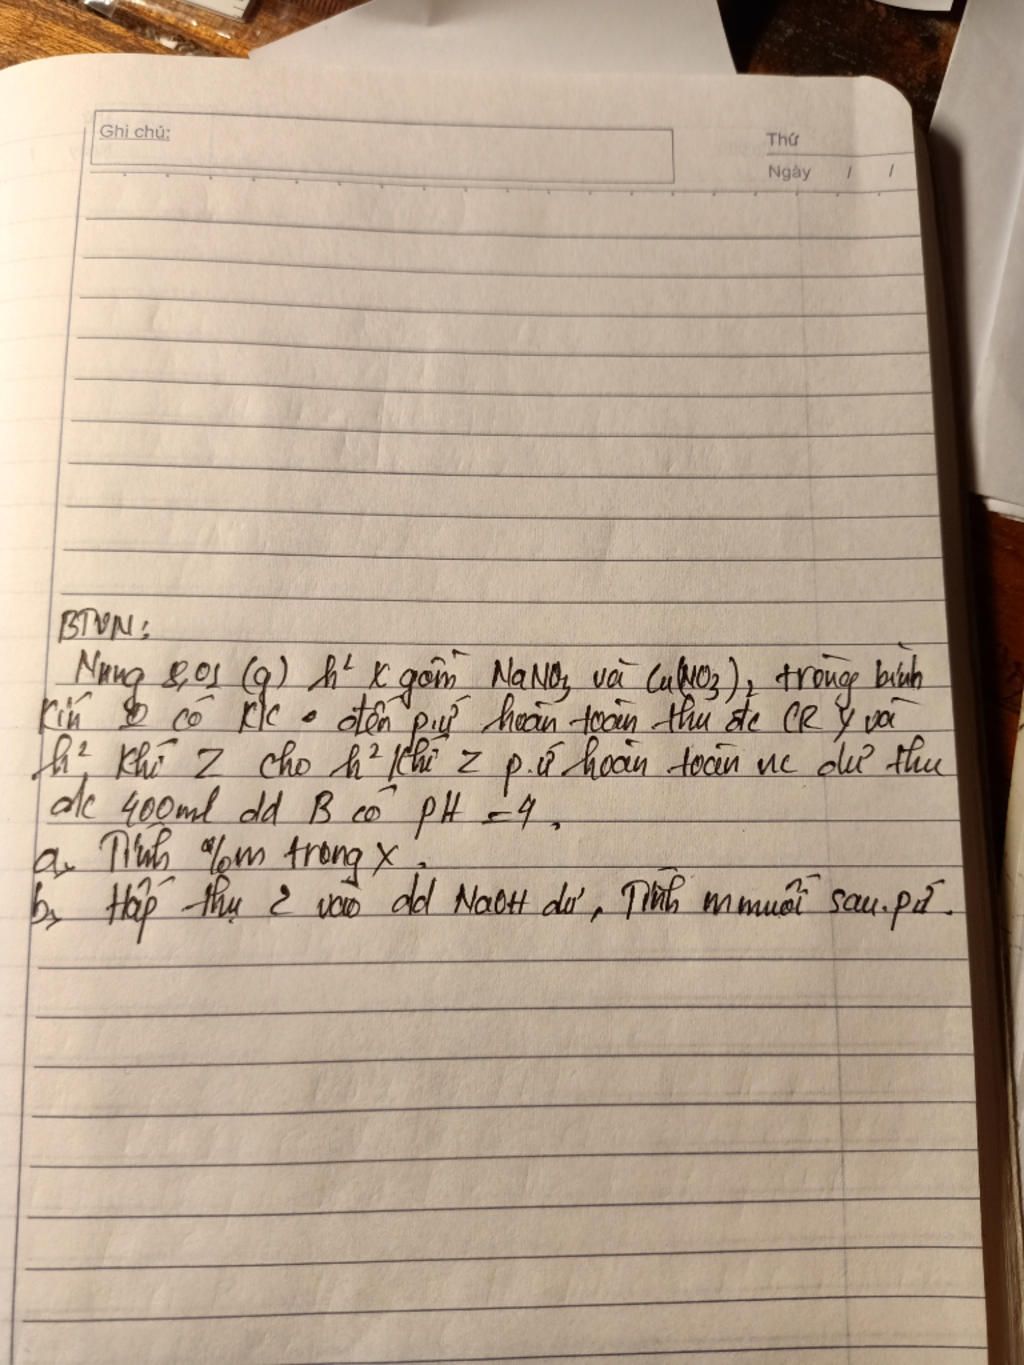 Ghi chú:
Thứ
Ngày / /
BTVN:
Nung 8,01 (g) h² X gồm NaNO3 và Cu(NO3)2 trong bình
kín có K/C đến p.ứ hoàn toàn thu đc CR Y và
h² khí Z cho h² khí Z p.ứ hoàn toàn nc dư thu
đc 400ml dd B có pH = 4.
a, Tính %m trong X.
b, Hấp thụ Z vào dd NaOH dư, Tính m muối sau.pứ.